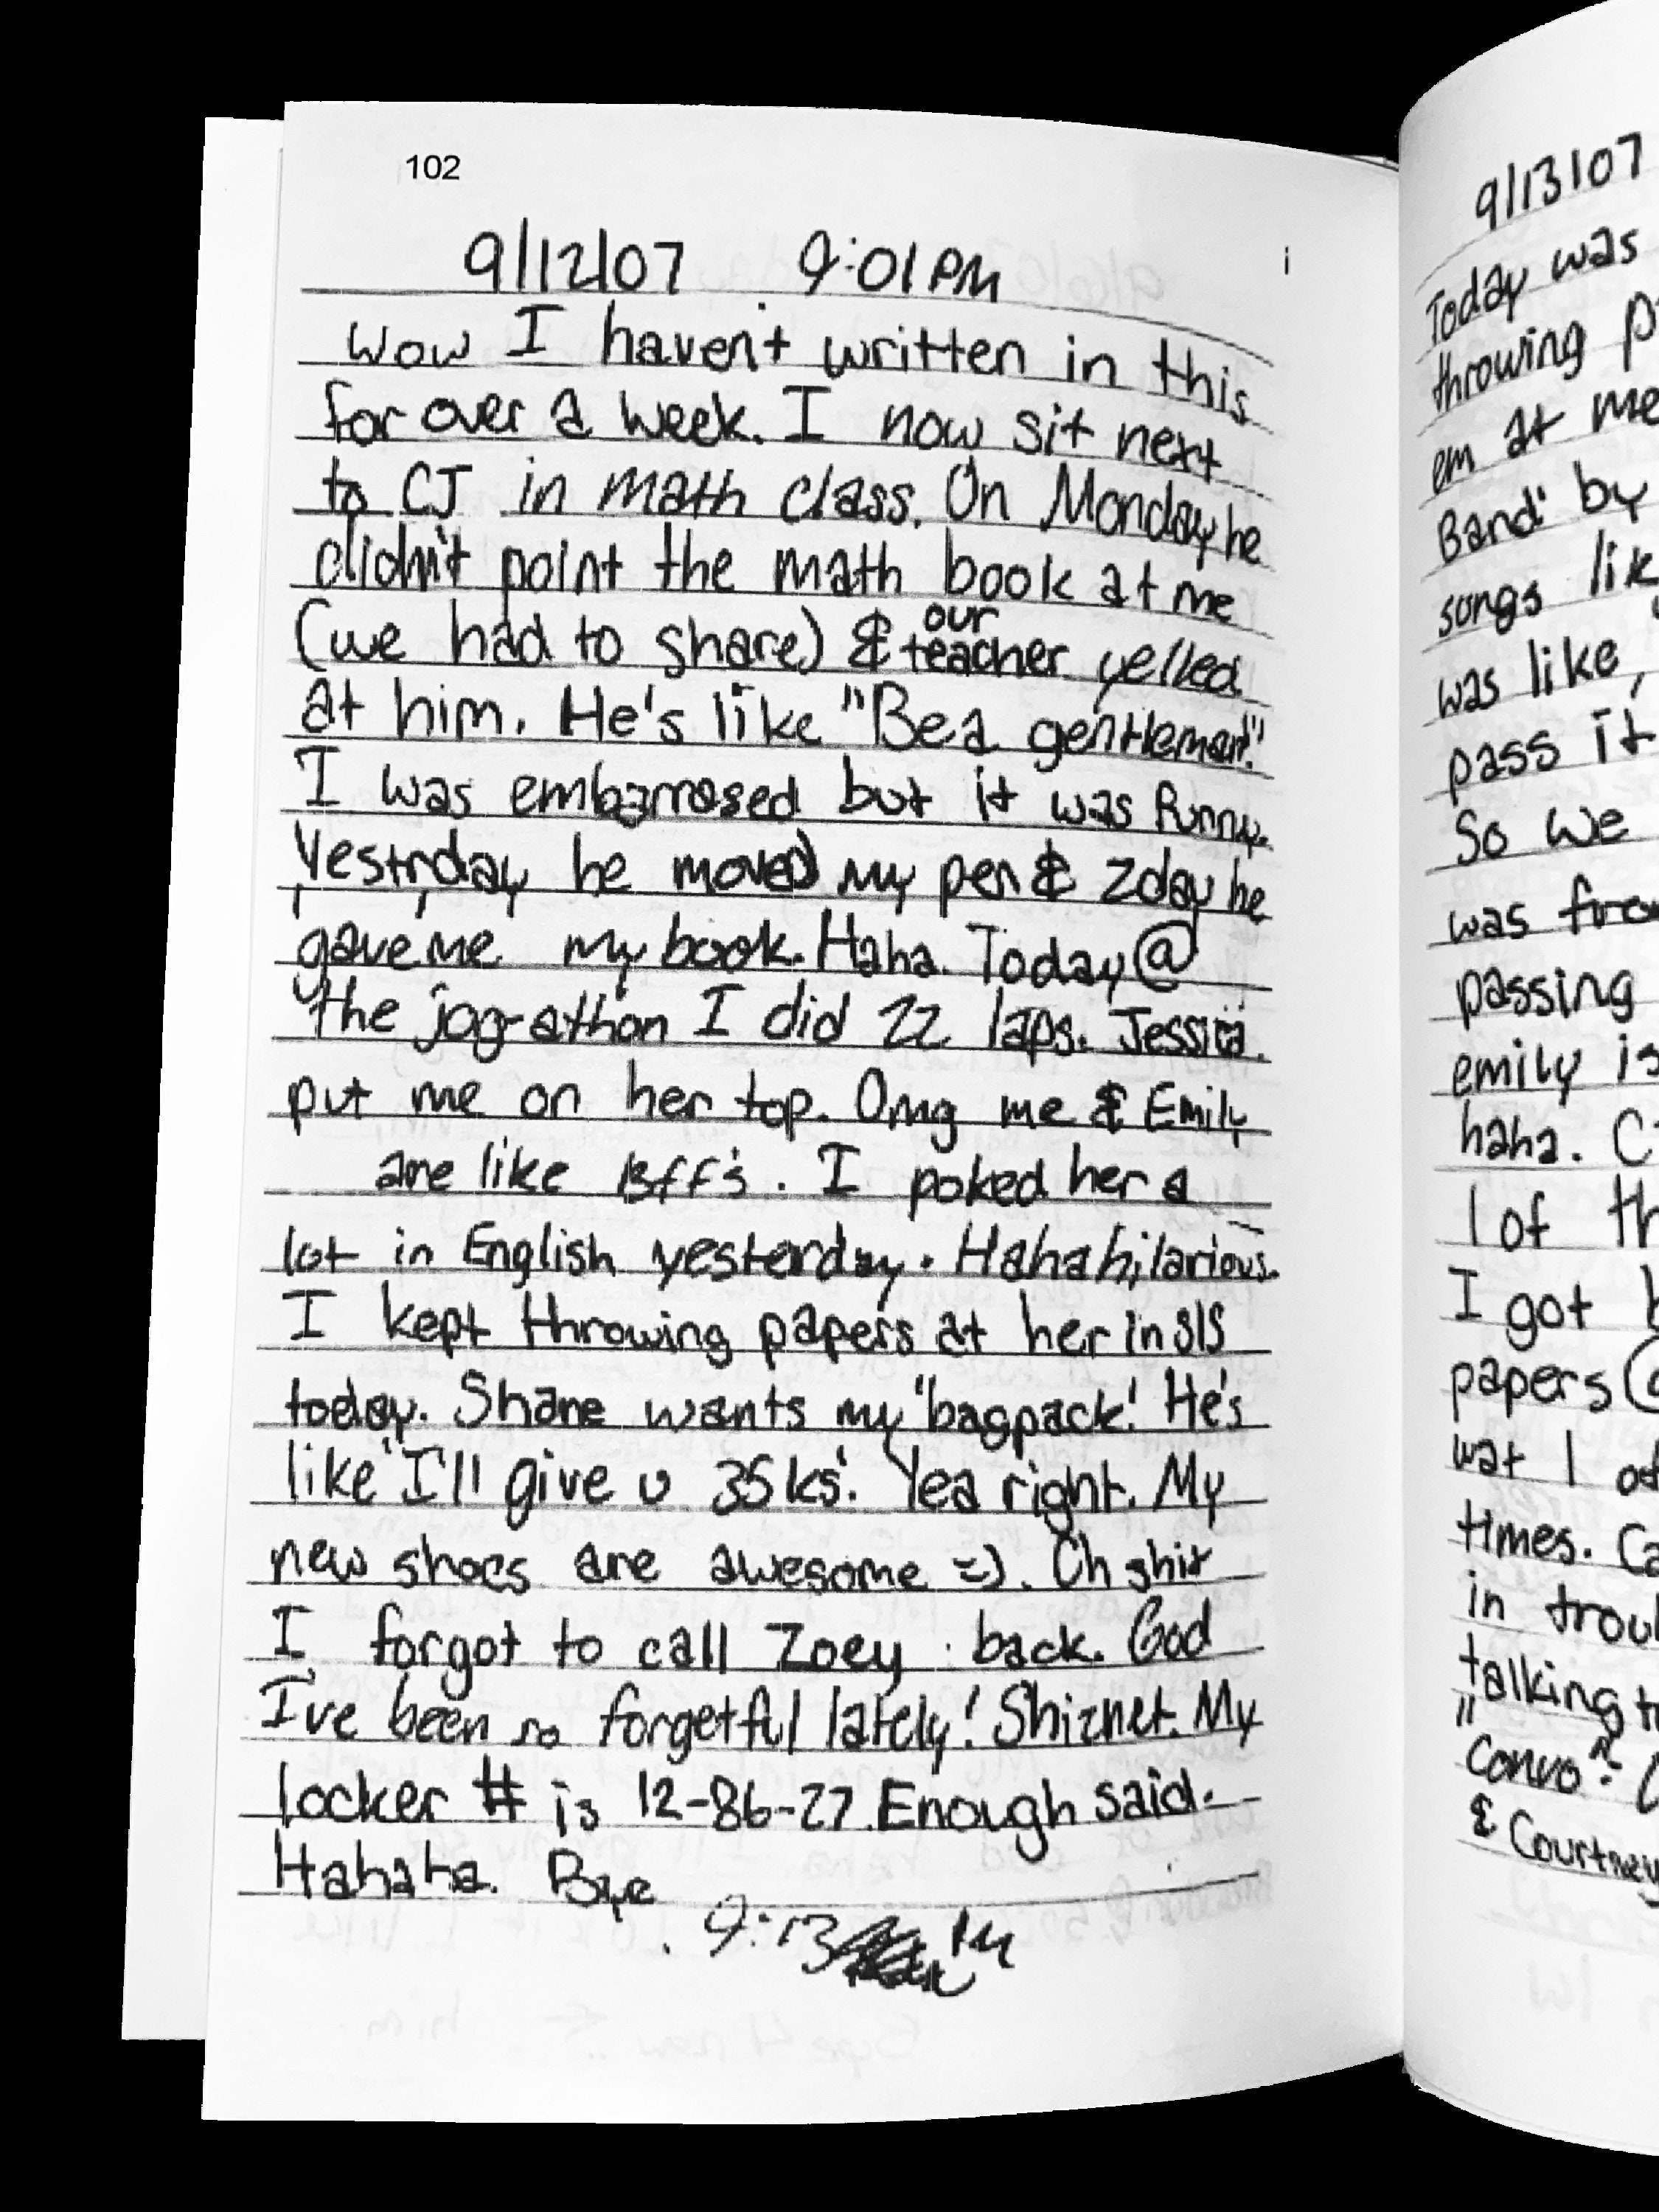 102
9/12/07 9:01 PM
Wow I haven't written in this
for over a week. I now sit next
to CJ in math class. On Monday he
didn't point the math book at me
(we had to share) & our teacher yelled
at him. He's like "Be a gentleman."
I was embarrosed but it was funny.
Yestrday he moved my pen & 2day he
gave me my book. Haha. Today @
the jog-athon I did 22 laps. Jessica
put me on her top. Omg me & Emily
are like Bff's. I poked her a
lot in English yesterday. Haha hilarious.
I kept throwing papers at her in SIS
today. Shane wants my "bagpack." He's
like "I'll give u 35 ks". Yea right. My
new shoes are awesome =). Oh shit
I forgot to call Zoey back. God
I've been so forgetful lately! Shiznet. My
locker # is 12-86-27. Enough said.
Hahaha. Bye
9:13 PM
9/13/07
Today was
throwing
em at me
Band" by
songs lik
was like,
pass it
So we
was
passing
emily is
haha. C
1 of th
I got
papers
wat I
times. Ca
in troul
talking t
"convo".
& Courtney